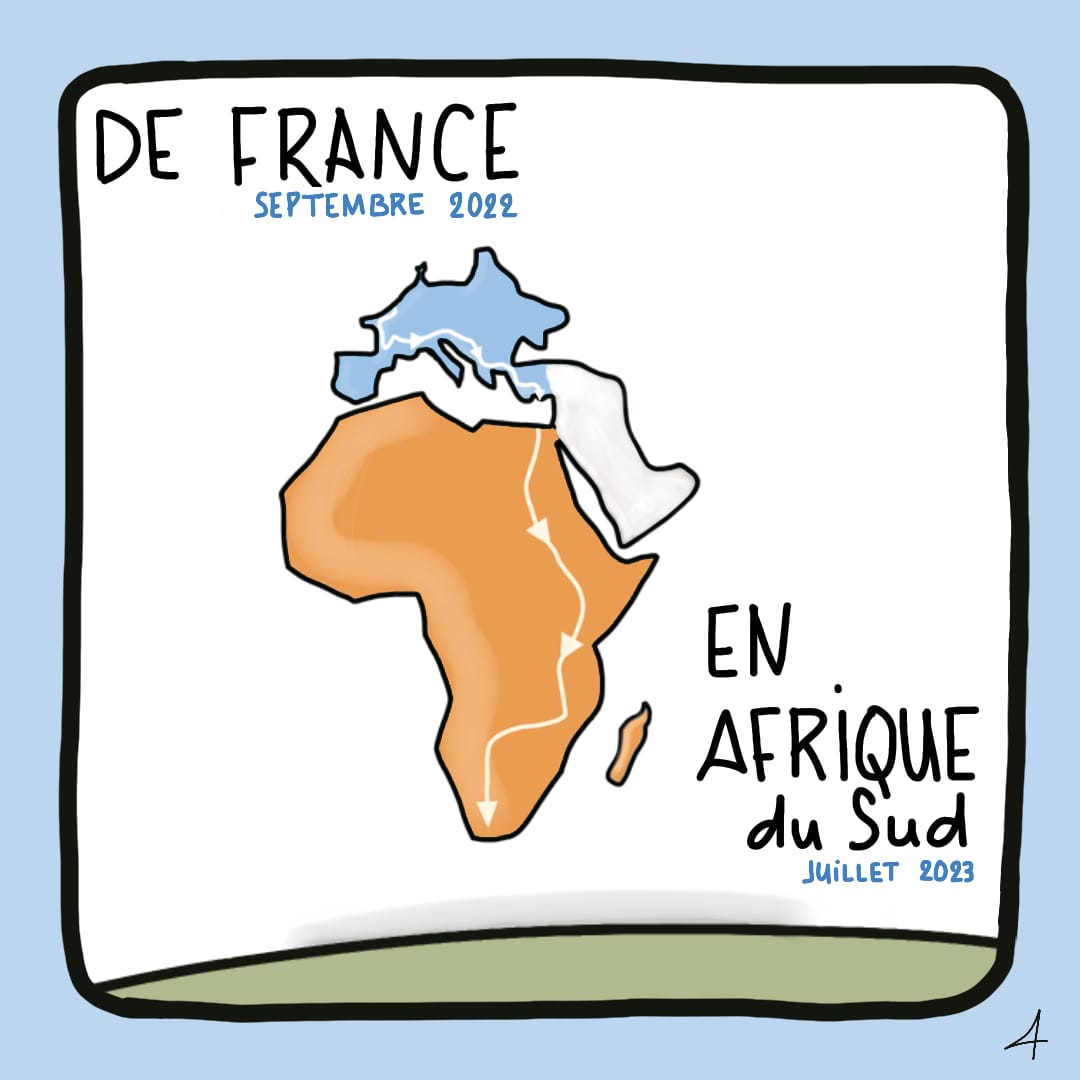 DE FRANCE
SEPTEMBRE 2022
EN
AFRiQUE
du Sud
JUiLLET 2023
4